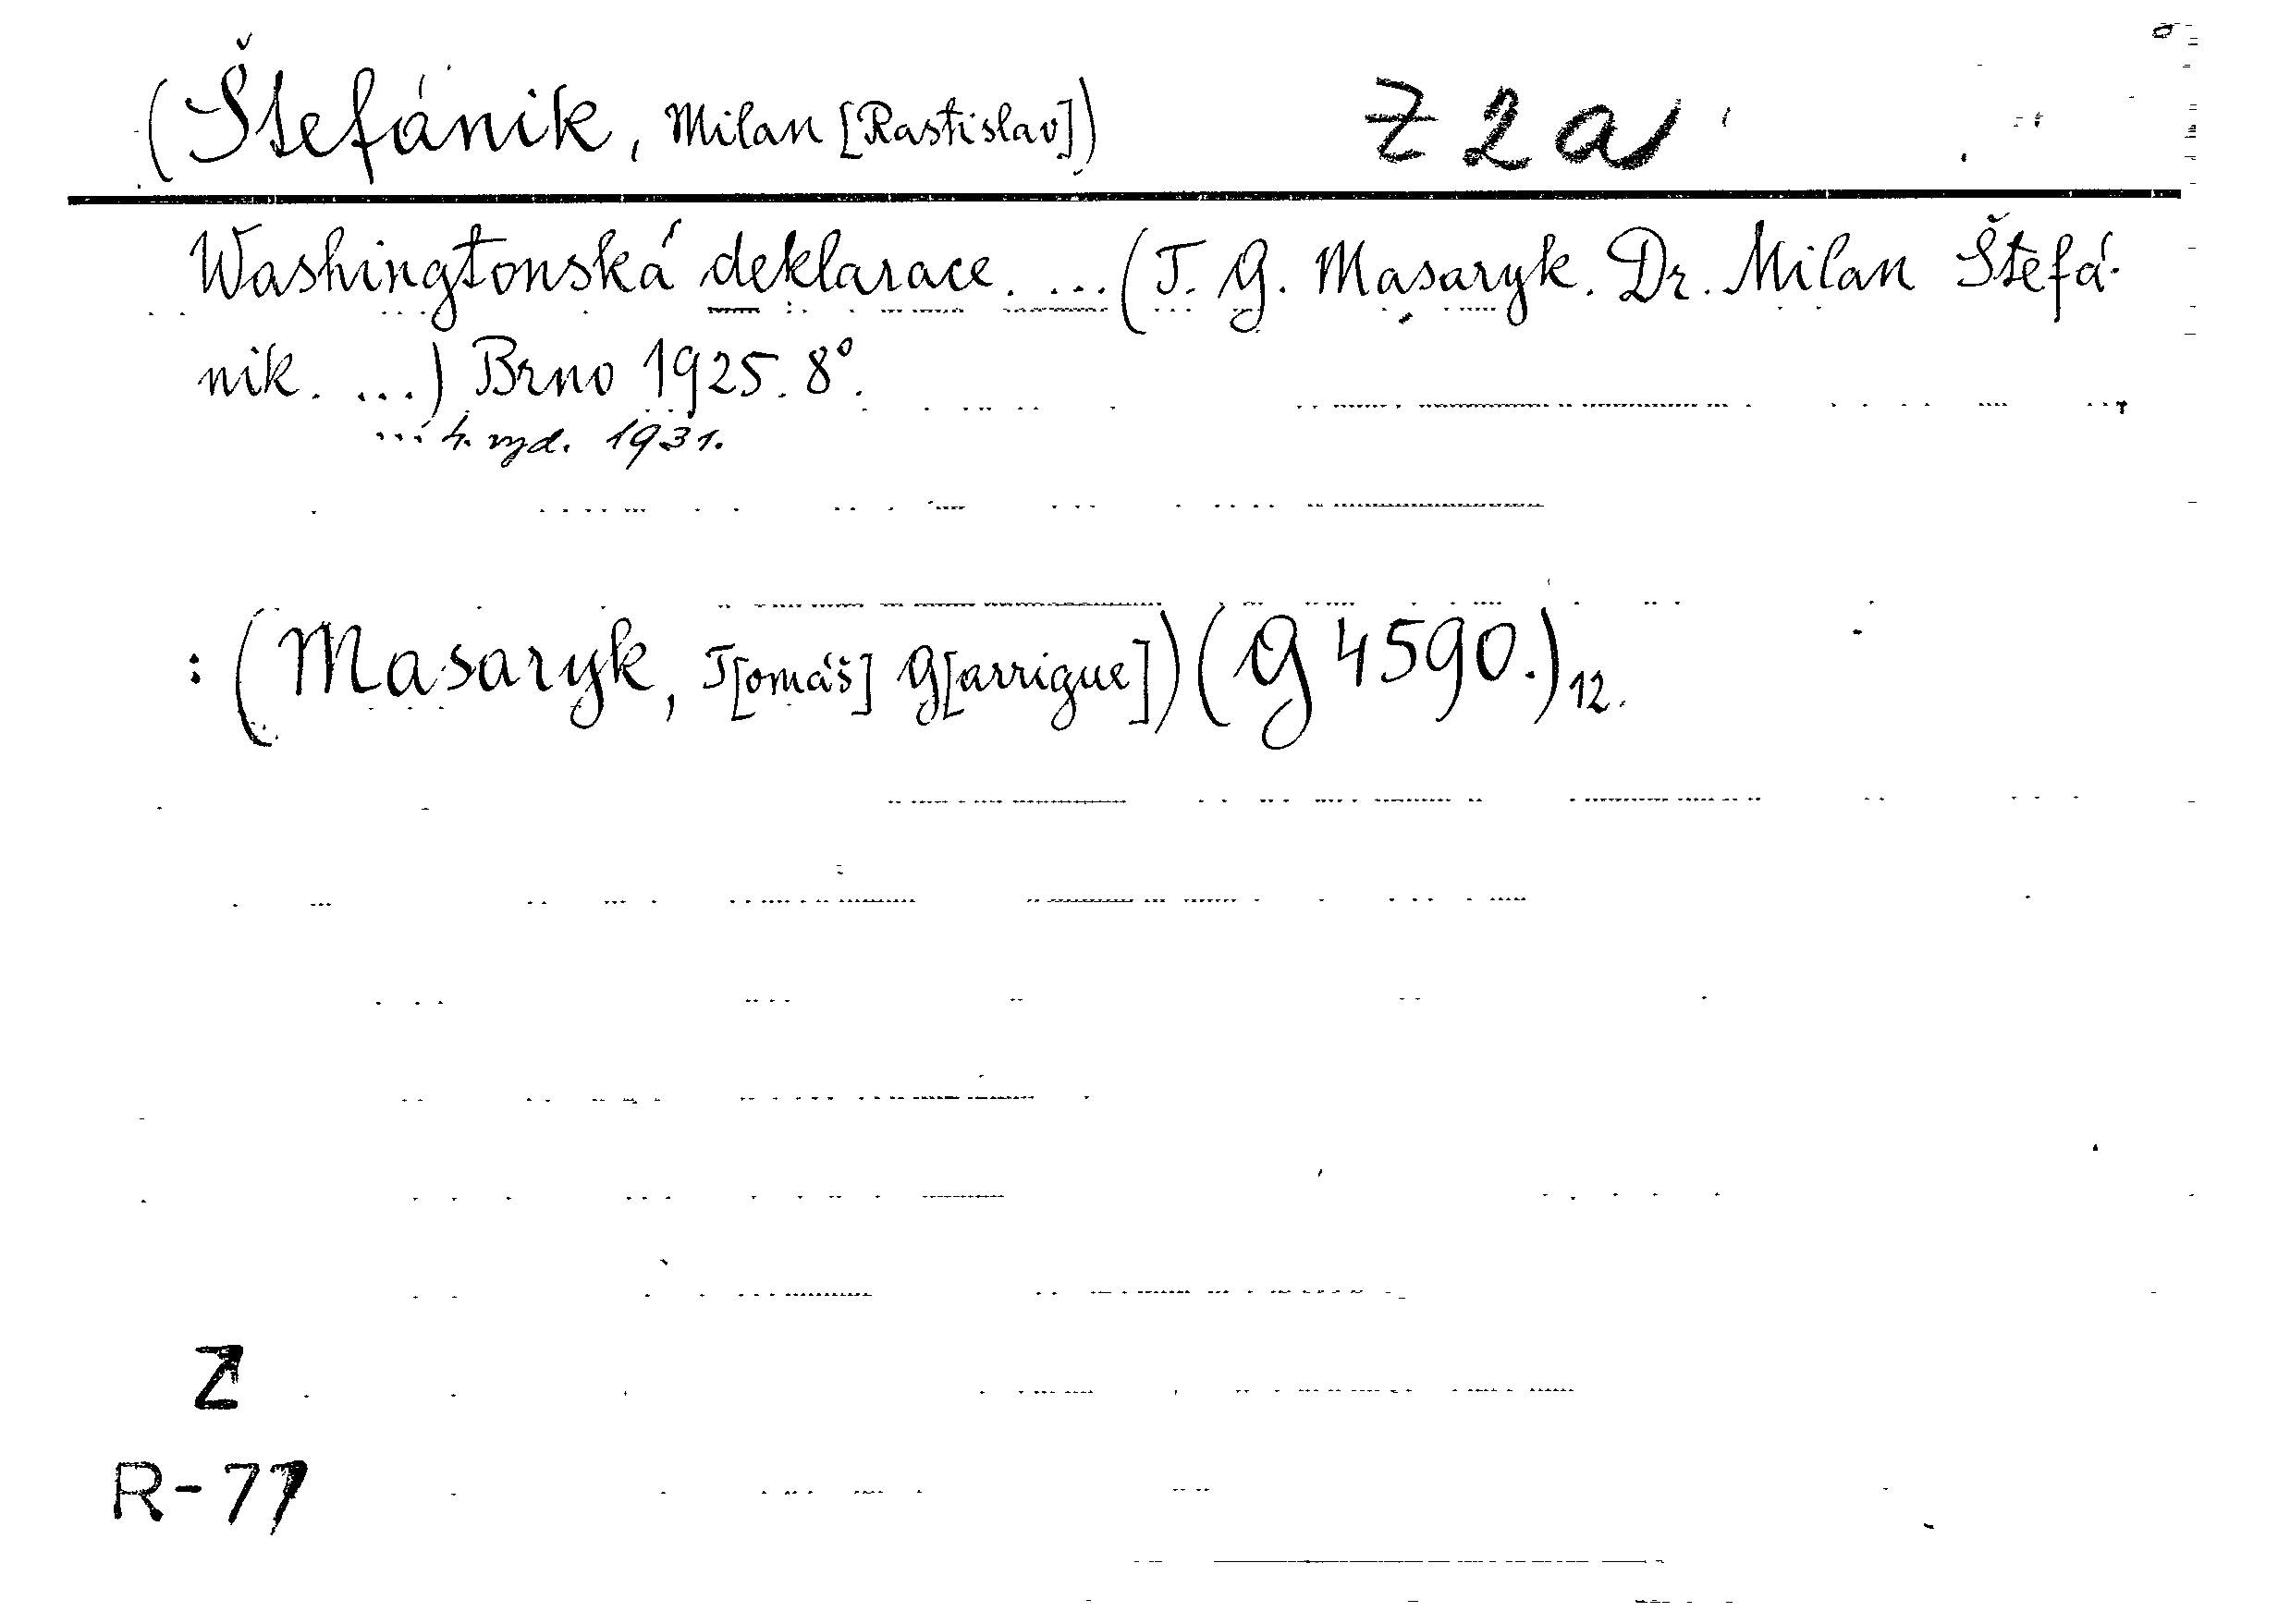 (Štefánik, Milan [Rastislav]) Z 2 a
Washingtonská deklarace. ... (T. G. Masaryk. Dr. Milan Štefá-
nik. ...) Brno 1925. 8°.
... 4. vyd. 1931.
: (Masaryk, T[omáš] G[arrigue]) (G 4590.) 12.
Z
R-77